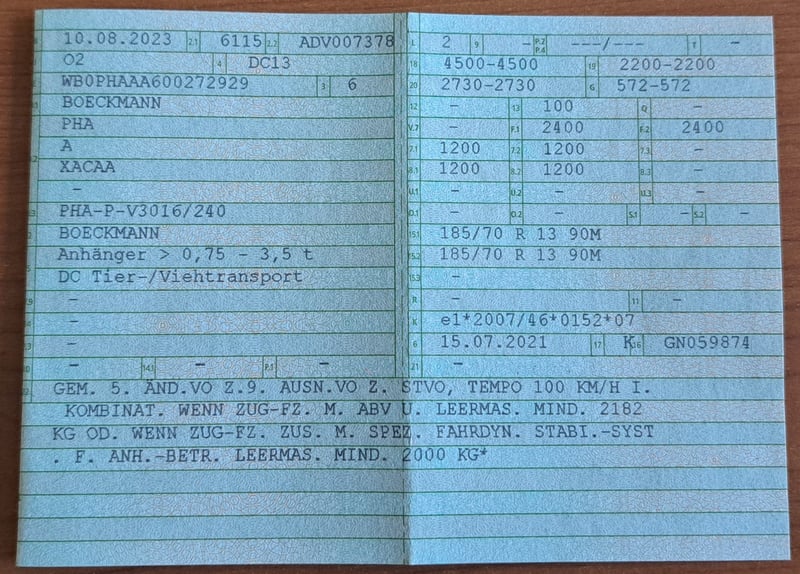 10.08.2023 2.1 6115 2.2 ADV007378
O2 4 DC13
WB0PHAAA600272929 3 6
BOECKMANN
PHA
A
XACAA
–
PHA-P-V3016/240
BOECKMANN
Anhänger > 0,75 - 3,5 t
DC Tier-/Viehtransport
–
–
–
– 14.1 – P.1 –
L 2 9 – P.2 P.4 ---/--- T –
18 4500-4500 19 2200-2200
20 2730-2730 G 572-572
12 – 13 100 Q –
V.7 – F.1 2400 F.2 2400
7.1 1200 7.2 1200 7.3 –
8.1 1200 8.2 1200 8.3 –
U.1 – U.2 – U.3 –
O.1 – O.2 – S.1 – S.2 –
15.1 185/70 R 13 90M
15.2 185/70 R 13 90M
15.3 –
R – 11 –
K e1*2007/46*0152*07
6 15.07.2021 17 K 16 GN059874
21 –
GEM. 5. ÄND.VO Z.9. AUSN.VO Z. STVO, TEMPO 100 KM/H I.
KOMBINAT. WENN ZUG-FZ. M. ABV U. LEERMAS. MIND. 2182
KG OD. WENN ZUG-FZ. ZUS. M. SPEZ. FAHRDYN. STABI.-SYST
. F. ANH.-BETR. LEERMAS. MIND. 2000 KG*